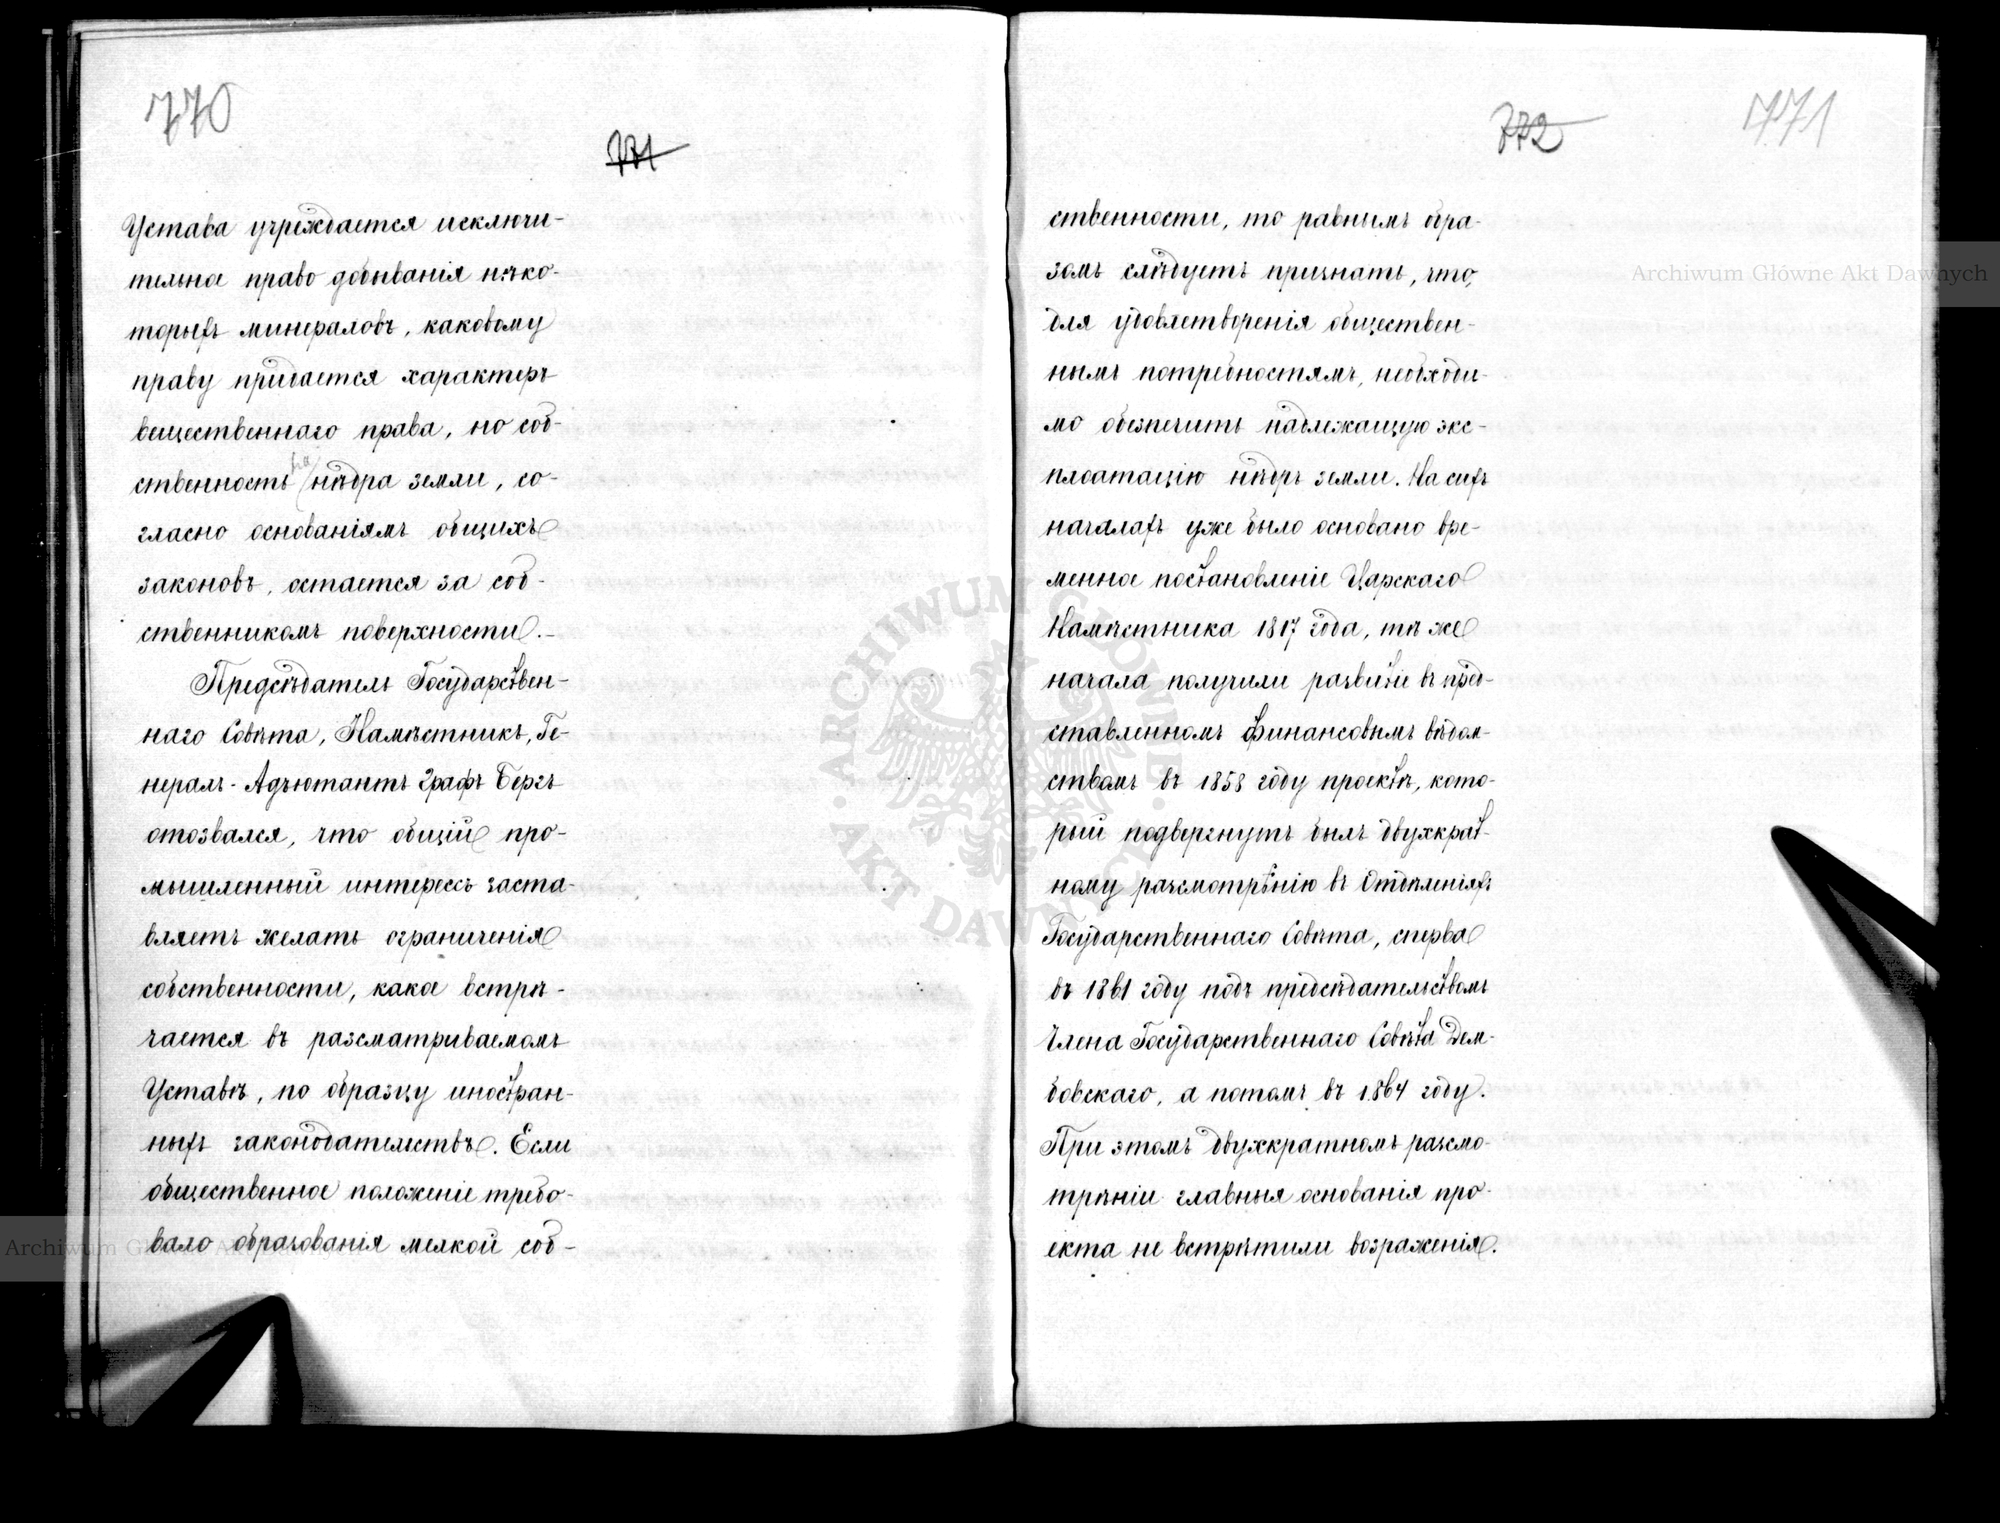 770
771
Устава учреждается исключи-
тельное право добыванія нѣко-
торыхъ минераловъ, каковому
праву придается характеръ
вещественнаго права, но соб-
ственность на нѣдра земли, со-
гласно основаніямъ общихъ
законовъ, остается за соб-
ственникомъ поверхности.-
Предсѣдатель Государствен-
наго Совѣта, Намѣстникъ, Ге-
нералъ-Адъютантъ Графъ Бергъ
отозвался, что общій про-
мышленный интересъ заста-
вляетъ желать ограниченія
собственности, какое встрѣ-
чается въ разсматриваемомъ
Уставѣ, по образцу иностран-
ныхъ законодательствъ. Если
общественное положеніе требо-
вало образованія мелкой соб-
772
771
ственности, то равнымъ обра-
зомъ слѣдуетъ признать, что,
для удовлетворенія обществен-
нымъ потребностямъ, необходи-
мо обезпечить надлежащую экс-
плоатацію нѣдръ земли. На сихъ
началахъ уже было основано вре-
менное постановленіе Царскаго
Намѣстника 1817 года, тѣ же
начала получили развитіе въ пред-
ставленномъ Финансовымъ вѣдом-
ствомъ въ 1858 году проектѣ, кото-
рый подвергнутъ былъ двухкрат-
ному разсмотрѣнію въ Отдѣленіяхъ
Государственнаго Совѣта, сперва
въ 1861 году подъ предсѣдательствомъ
Члена Государственнаго Совѣта Дем-
бовскаго, а потомъ въ 1864 году.
При этомъ двухкратномъ разсмо-
трѣніи главныя основанія про-
екта не встрѣтили возраженія.
Archiwum Główne Akt Dawnych
ARCHIWUM GŁÓWNE
AKT DAWNYCH
Archiwum Główne Akt Dawnych